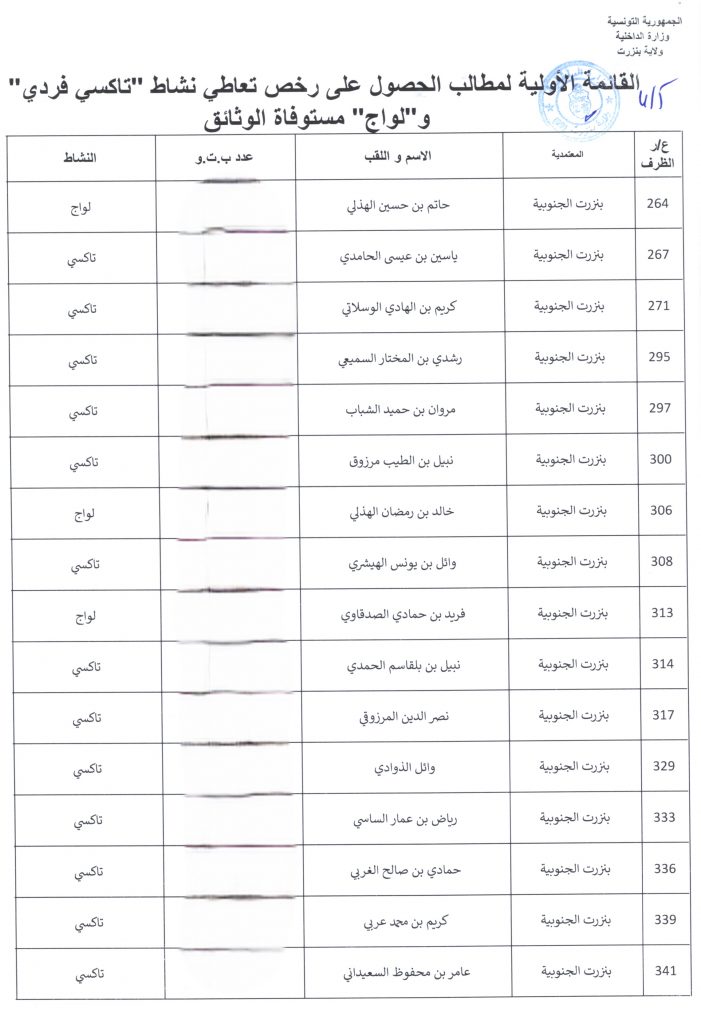 الجمهورية التونسية
وزارة الداخلية
ولاية بنزرت
القائمة الأولية لمطالب الحصول على رخص تعاطي نشاط "تاكسي فردي"
و"لواج" مستوفاة الوثائق
ع/ر الظرف | المعتمدية | الاسم و اللقب | عدد ب.ت.و | النشاط
264 | بنزرت الجنوبية | حاتم بن حسين الهذلي | لواج
267 | بنزرت الجنوبية | ياسين بن عيسى الحامدي | تاكسي
271 | بنزرت الجنوبية | كريم بن الهادي الوسلاتي | تاكسي
295 | بنزرت الجنوبية | رشدي بن المختار السميعي | تاكسي
297 | بنزرت الجنوبية | مروان بن حميد الشباب | تاكسي
300 | بنزرت الجنوبية | نبيل بن الطيب مرزوق | تاكسي
306 | بنزرت الجنوبية | خالد بن رمضان الهذلي | لواج
308 | بنزرت الجنوبية | وائل بن يونس الهيشري | تاكسي
313 | بنزرت الجنوبية | فريد بن حمادي الصدقاوي | لواج
314 | بنزرت الجنوبية | نبيل بن بلقاسم الحمدي | تاكسي
317 | بنزرت الجنوبية | نصر الدين المرزوقي | تاكسي
329 | بنزرت الجنوبية | وائل الذوادي | تاكسي
333 | بنزرت الجنوبية | رياض بن عمار الساسي | تاكسي
336 | بنزرت الجنوبية | حمادي بن صالح الغربي | تاكسي
339 | بنزرت الجنوبية | كريم بن محمد عربي | تاكسي
341 | بنزرت الجنوبية | عامر بن محفوظ السعيداني | تاكسي